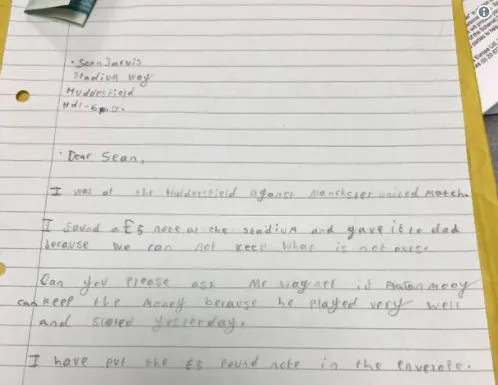 Sean Jarvis
Stadium way
Huddersfield
Dear Sean,
I was at the Huddersfield against Manchster united Match.
I Found a £5 note at the stadium and gave it to dad
because we can not keep what is not ours.
Can you please ask Mr wagner if Aaron mooy
can keep the money because he played very well
and scored yesterday.
I have put the £5 Pound note in the envelope.